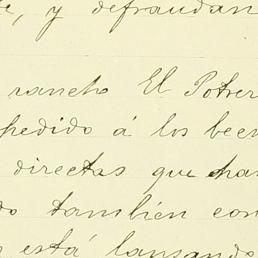 y defraudan
rancho El Potrer
pedido á los
directas que has
do también con
está lansando